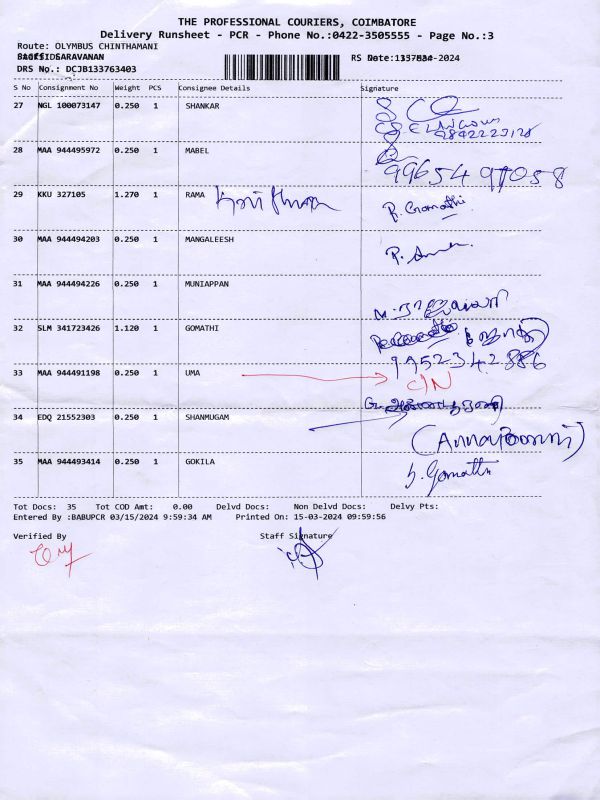 THE PROFESSIONAL COURIERS, COIMBATORE
Delivery Runsheet - PCR - Phone No.:0422-3505555 - Page No.:3
Route: OLYMBUS CHINTHAMANI
SARAVANAN RS
DRS No.: DCJB133763403
S No Consignment No Weight PCS Consignee Details Signature
27 NGL 100073147 0.250 1 SHANKAR
28 MAA 944495972 0.250 1 MABEL
99654 97058
29 KKU 327105 1.270 1 RAMA
30 MAA 944494203 0.250 1 MANGALEESH
31 MAA 944494226 0.250 1 MUNIAPPAN
32 SLM 341723426 1.120 1 GOMATHI
9952342886
33 MAA 944491198 0.250 1 UMA C/N
34 EDQ 21552303 0.250 1 SHANMUGAM
35 MAA 944493414 0.250 1 GOKILA
Tot Docs: 35 Tot COD Amt: 0.00 Delvd Docs: Non Delvd Docs: Delvy Pts:
Entered By :BABUPCR 03/15/2024 9:59:34 AM Printed On: 15-03-2024 09:59:56
Verified By Staff Signature